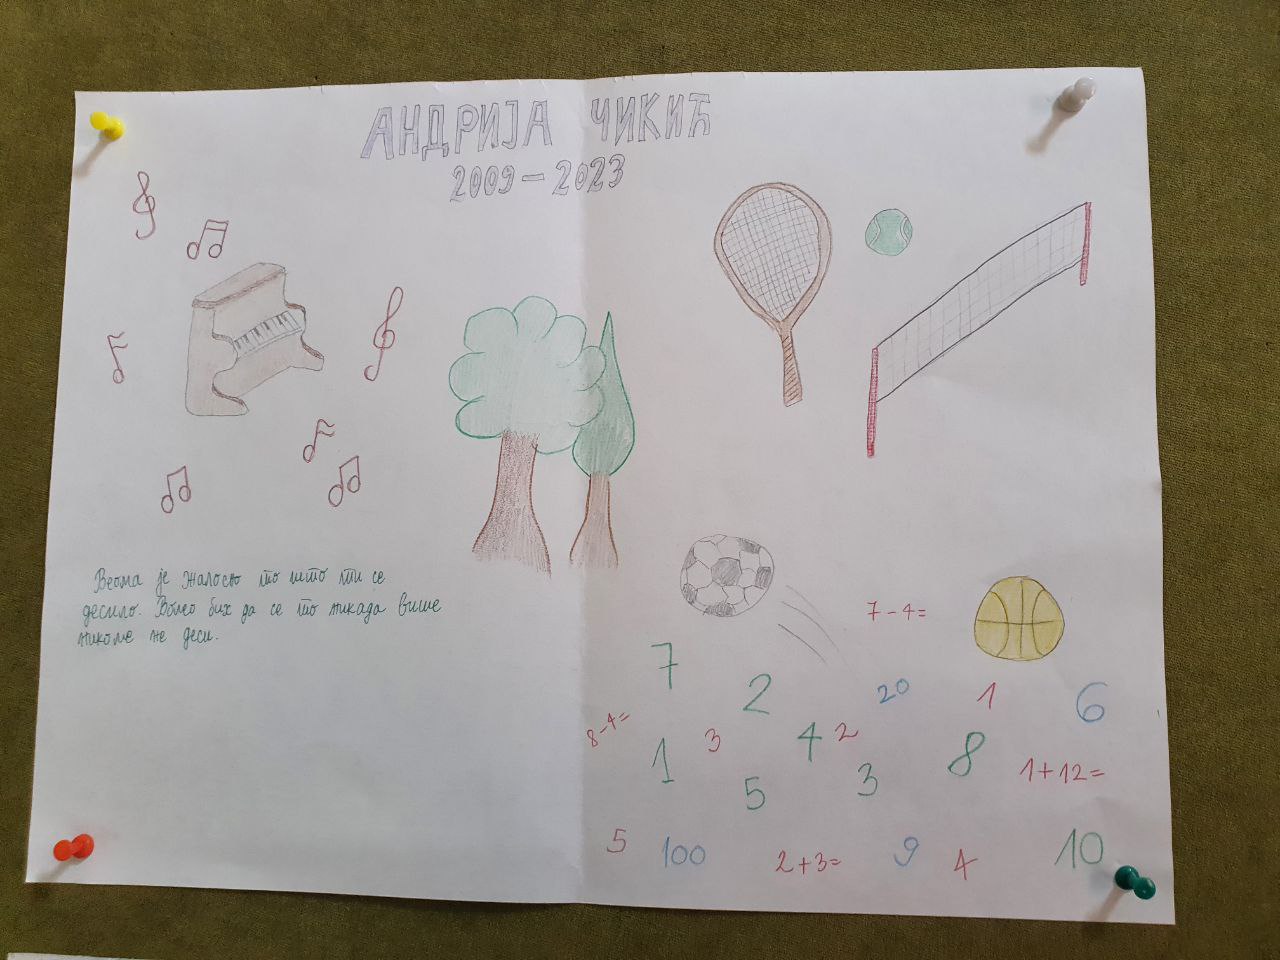 АНДРИЈА ЧИКИЋ
2009-2023
Веома је жалосно то што ти се
десило. Волео бих да се то никада више
никоме не деси.
7-4=
7
2
20
1
6
8-4=
1
3
4
2
8
1+12=
5
3
5
100
2+3=
9
4
10